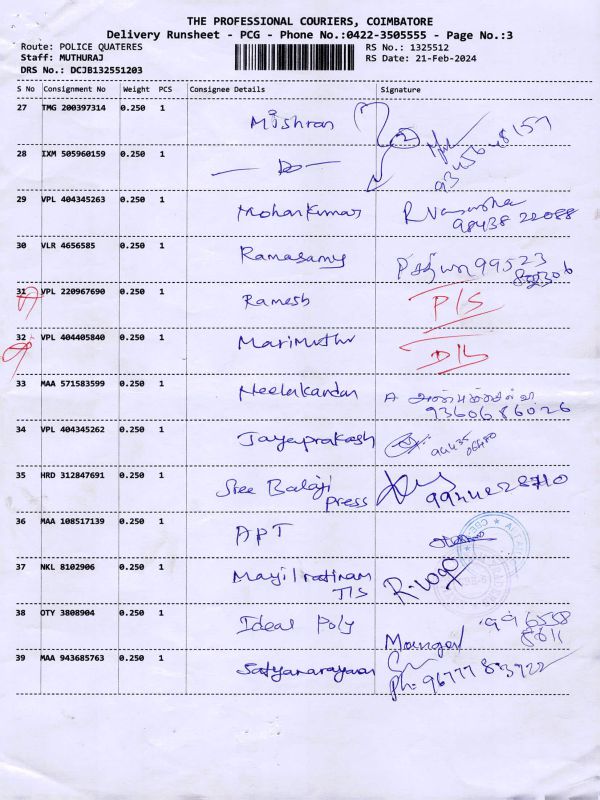 THE PROFESSIONAL COURIERS, COIMBATORE
Delivery Runsheet - PCG - Phone No.:0422-3505555 - Page No.:3
Route: POLICE QUATERES RS No.: 1325512
Staff: MUTHURAJ RS Date: 21-Feb-2024
DRS No.: DCJB132551203
S No Consignment No Weight PCS Consignee Details Signature
27 TMG 200397314 0.250 1 Mishran
28 IXM 505960159 0.250 1 — Do —
29 VPL 404345263 0.250 1 Mohan Kumar 98438 22088
30 VLR 4656585 0.250 1 Ramasamy 99523
31 VPL 220967690 0.250 1 Ramesh P/S
32 VPL 404405840 0.250 1 Marimuthu D/L
33 MAA 571583599 0.250 1 Neelakandan A
9360686026
34 VPL 404345262 0.250 1 Jayaprakash
35 HRD 312847691 0.250 1 Sree Balaji
Press
36 MAA 108517139 0.250 1 APT
37 NKL 8102906 0.250 1 Mayil ratinam
T/S
38 OTY 3808904 0.250 1 Ideal Poly 996558
8611
39 MAA 943685763 0.250 1 Satyanarayanan
Ph: 96777 83722